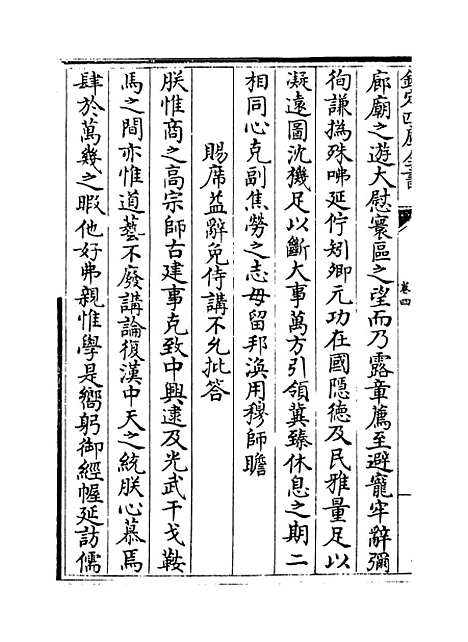 欽定四庫全書
卷四
廊廟之遊大慰寰區之望而乃露章薦至避寵牢辭彌
徇謙撝殊咈延佇矧卿元功在國隱德及民雅量足以
凝遠圖沈機足以斷大事萬方引領冀臻休息之期二
相同心克副焦勞之志毋留邦渙用穆師瞻
賜席益辭免侍講不允批答
朕惟商之高宗師古建事克致中興逮及光武干戈鞍
馬之間亦惟道藝不廢講論復漢中天之統朕心慕焉
肆於萬幾之暇他好弗親惟學是嚮躬御經幄延訪儒